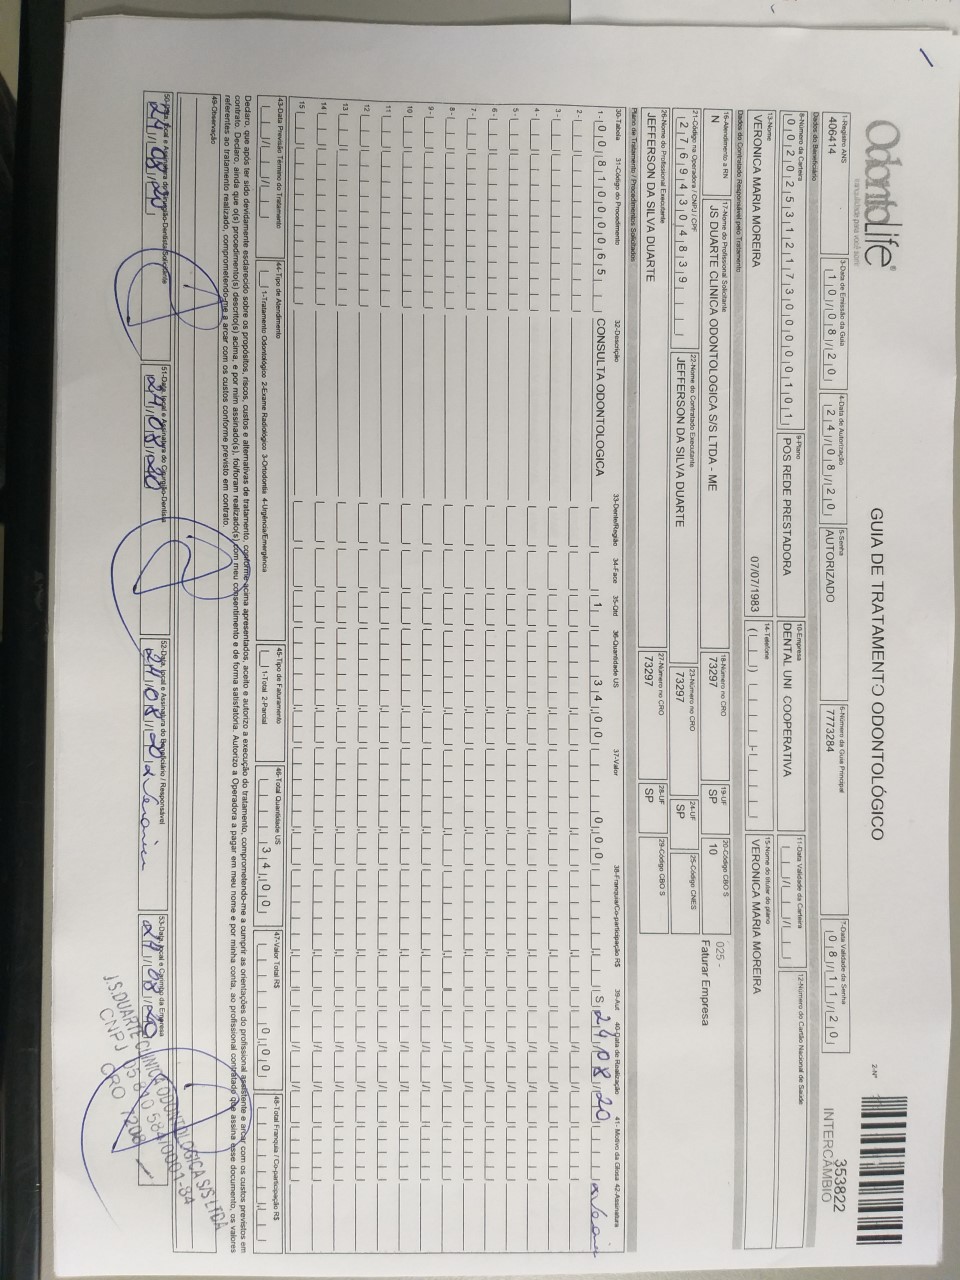 OdontoLife®
tranquilidade para você sorrir
GUIA DE TRATAMENTO ODONTOLÓGICO
2-Nº
353822
INTERCÂMBIO
1-Registro ANS
406414
3-Data de Emissão da Guia
10/08/20
4-Data de Autorização
24/08/20
5-Senha
AUTORIZADO
6-Número da Guia Principal
7773284
7-Data Validade da Senha
08/11/20
Dados do Beneficiário
8-Número da Carteira
00202531217300000101
9-Plano
POS REDE PRESTADORA
10-Empresa
DENTAL UNI COOPERATIVA
11-Data Validade da Carteira
12-Número do Cartão Nacional de Saúde
13-Nome
VERONICA MARIA MOREIRA
07/07/1983
14-Telefone
15-Nome do titular do plano
VERONICA MARIA MOREIRA
Dados do Contratado Responsável pelo Tratamento
16-Atendimento a RN
N
17-Nome do Profissional Solicitante
JS DUARTE CLINICA ODONTOLOGICA S/S LTDA - ME
18-Número no CRO
73297
19-UF
SP
20-Código CBO S
10
025 -
Faturar Empresa
21-Código na Operadora / CNPJ / CPF
27694304839
22-Nome do Contratado Executante
JEFFERSON DA SILVA DUARTE
23-Número no CRO
73297
24-UF
SP
25-Código CNES
26-Nome do Profissional Executante
JEFFERSON DA SILVA DUARTE
27-Número no CRO
73297
28-UF
SP
29-Código CBO S
Plano de Tratamento / Procedimentos Solicitados
30-Tabela 31-Código do Procedimento 32-Descrição 33-Dente/Região 34-Face 35-Qtd 36-Quantidade US 37-Valor 38-Franquia/Co-participação R$ 39-Aut 40-Data de Realização 41-Motivo da Glosa 42-Assinatura
1- 00 81000065 CONSULTA ODONTOLOGICA 1 34,00 0,00 S 24/08/20
2-
3-
4-
5-
6-
7-
8-
9-
10
11
12
13
14
15
43-Data Previsão Término do Tratamento
44-Tipo de Atendimento
1-Tratamento Odontológico 2-Exame Radiológico 3-Ortodontia 4-Urgência/Emergência
45-Tipo de Faturamento
1-Total 2-Parcial
46-Total Quantidade US
34,00
47-Valor Total R$
0,00
48-Total Franquia / Co-participação R$
Declaro, que após ter sido devidamente esclarecido sobre os propósitos, riscos, custos e alternativas de tratamento, conforme acima apresentados, aceito e autorizo a execução do tratamento, comprometendo-me a cumprir as orientações do profissional assistente e arcar com os custos previstos em
contrato. Declaro, ainda que o(s) procedimento(s) descrito(s) acima, e por mim assinado(s), foi/foram realizado(s) com meu consentimento e de forma satisfatória. Autorizo a Operadora a pagar em meu nome e por minha conta, ao profissional contratado que assina esse documento, os valores
referentes ao tratamento realizado, comprometendo-me a arcar com os custos conforme previsto em contrato.
49-Observação
50-Data, local e Assinatura do Cirurgião-Dentista Solicitante
24/08/20
51-Data, local e Assinatura do Cirurgião-Dentista
24/08/20
52-Data, local e Assinatura do Beneficiário / Responsável
24/08/20
53-Data, local e Carimbo da Empresa
24/08/20
J.S.DUARTE CLINICA ODONTOLOGICA S/S LTDA
CNPJ
CRO